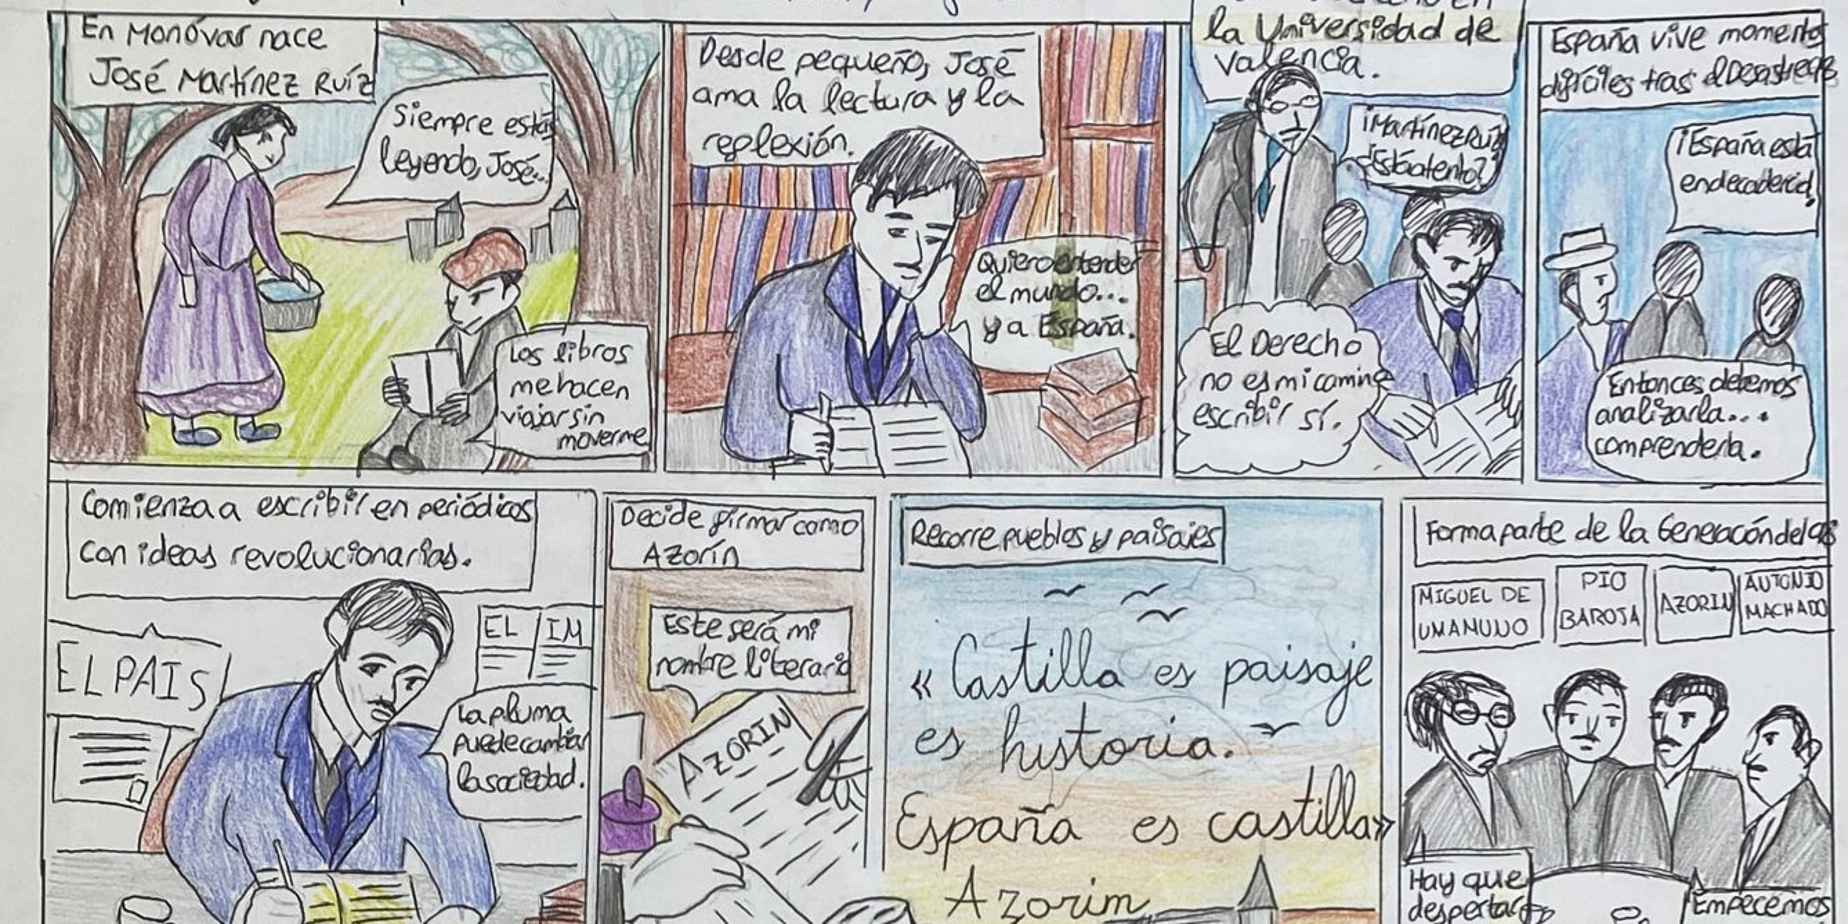 En Monóvar nace
José Martínez Ruíz
Siempre estás
leyendo, José...
Los libros
me hacen
viajar sin
moverme
Desde pequeño, José
ama la lectura y la
reflexión.
Quiero entender
el mundo...
y a España.
la Universidad de
Valencia.
¡Martínez Ruíz
¿Está atento?
El Derecho
no es mi camino
escribir sí.
España vive momentos
difíciles tras el Desastre
¡España está
en decadencia!
Entonces debemos
analizarla...
comprenderla.
Comienza a escribir en periódicos
con ideas revolucionarias.
EL PAIS
EL IM
La pluma
puede cambiar
la sociedad.
Decide firmar como
Azorín
Este será mi
nombre literario
AZORIN
Recorre pueblos y paisajes
«Castilla es paisaje
es historia.
España es castilla»
Azorim
Forma parte de la Generación del 98
MIGUEL DE
UMANUNO
PIO
BAROJA
AZORIN
AUTONIO
MACHADO
Hay que
despertar
Empecemos